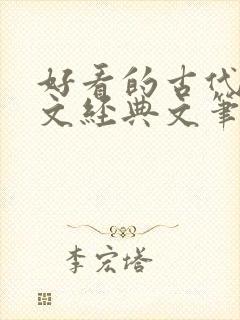 好看的古代
文经典文笔
李宏塔